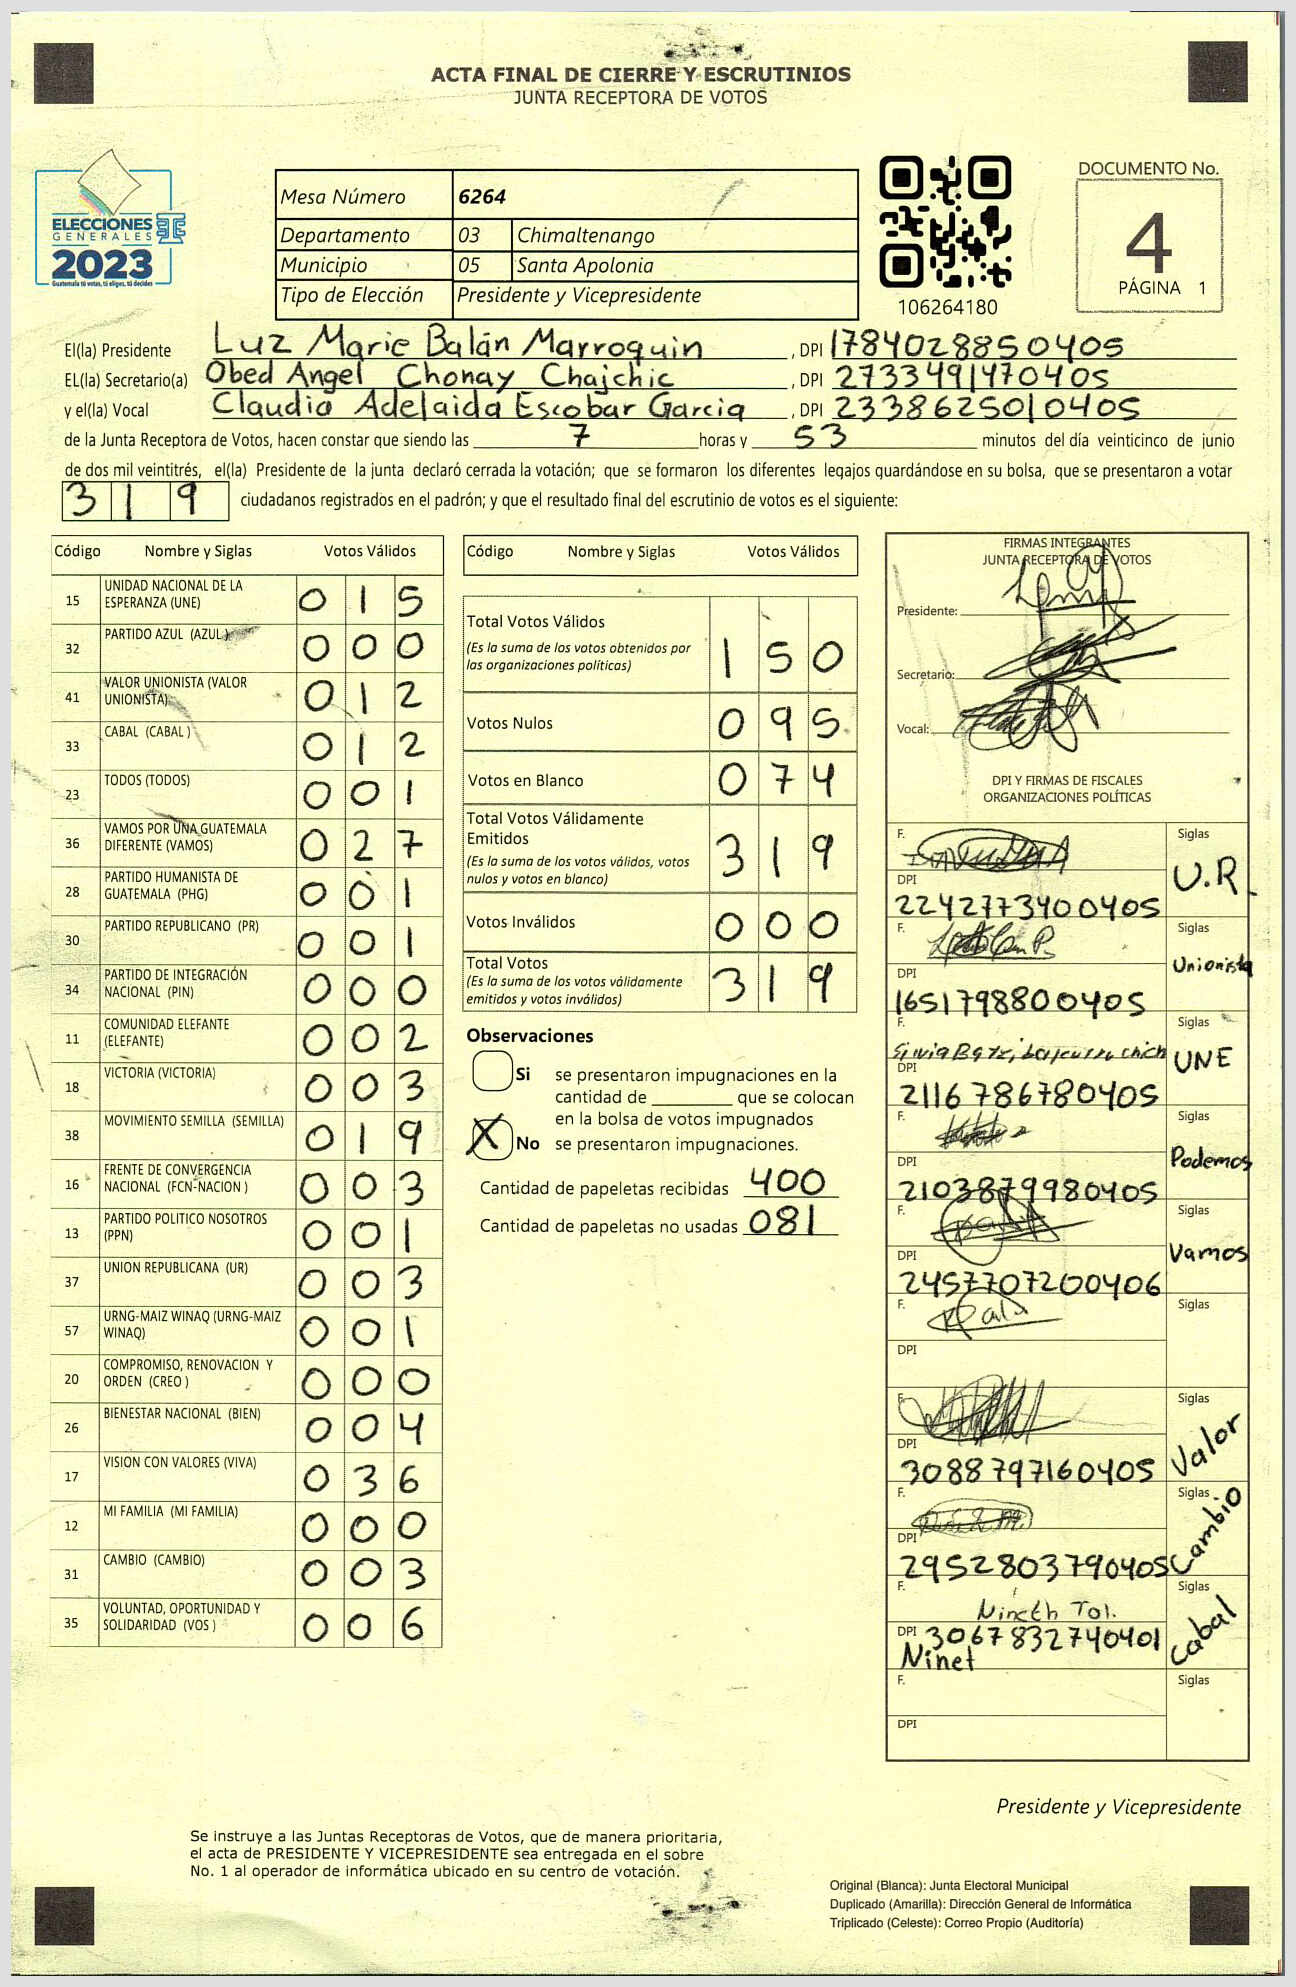 ACTA FINAL DE CIERRE Y ESCRUTINIOS
JUNTA RECEPTORA DE VOTOS
ELECCIONES
GENERALES
2023
Guatemala tú votas, tú eliges, tú decides
Mesa Número 6264
Departamento 03 Chimaltenango
Municipio 05 Santa Apolonia
Tipo de Elección Presidente y Vicepresidente
106264180
DOCUMENTO No.
4
PÁGINA 1
El(la) Presidente Luz Marie Balán Marroquin, DPI 1784028850405
EL(la) Secretario(a) Obed Angel Chonay Chajchic, DPI 2733491470405
y el(la) Vocal Claudia Adelaida Escobar Garcia, DPI 2338625010405
de la Junta Receptora de Votos, hacen constar que siendo las 7 horas y 53 minutos del día veinticinco de junio
de dos mil veintitrés, el(la) Presidente de la junta declaró cerrada la votación; que se formaron los diferentes legajos guardándose en su bolsa, que se presentaron a votar
319 ciudadanos registrados en el padrón; y que el resultado final del escrutinio de votos es el siguiente:
Código Nombre y Siglas Votos Válidos
15 UNIDAD NACIONAL DE LA ESPERANZA (UNE) 015
32 PARTIDO AZUL (AZUL) 000
41 VALOR UNIONISTA (VALOR UNIONISTA) 012
33 CABAL (CABAL ) 012
23 TODOS (TODOS) 001
36 VAMOS POR UNA GUATEMALA DIFERENTE (VAMOS) 027
28 PARTIDO HUMANISTA DE GUATEMALA (PHG) 001
30 PARTIDO REPUBLICANO (PR) 001
34 PARTIDO DE INTEGRACIÓN NACIONAL (PIN) 000
11 COMUNIDAD ELEFANTE (ELEFANTE) 002
18 VICTORIA (VICTORIA) 003
38 MOVIMIENTO SEMILLA (SEMILLA) 019
16 FRENTE DE CONVERGENCIA NACIONAL (FCN-NACION ) 003
13 PARTIDO POLITICO NOSOTROS (PPN) 001
37 UNION REPUBLICANA (UR) 003
57 URNG-MAIZ WINAQ (URNG-MAIZ WINAQ) 001
20 COMPROMISO, RENOVACION Y ORDEN (CREO ) 000
26 BIENESTAR NACIONAL (BIEN) 004
17 VISION CON VALORES (VIVA) 036
12 MI FAMILIA (MI FAMILIA) 000
31 CAMBIO (CAMBIO) 003
35 VOLUNTAD, OPORTUNIDAD Y SOLIDARIDAD (VOS ) 006
Código Nombre y Siglas Votos Válidos
Total Votos Válidos 150
(Es la suma de los votos obtenidos por
las organizaciones políticas)
Votos Nulos 095
Votos en Blanco 074
Total Votos Válidamente
Emitidos 319
(Es la suma de los votos válidos, votos
nulos y votos en blanco)
Votos Inválidos 000
Total Votos 319
(Es la suma de los votos válidamente
emitidos y votos inválidos)
Observaciones
Si se presentaron impugnaciones en la
cantidad de ________ que se colocan
en la bolsa de votos impugnados
X No se presentaron impugnaciones.
Cantidad de papeletas recibidas 400
Cantidad de papeletas no usadas 081
FIRMAS INTEGRANTES
JUNTA RECEPTORA DE VOTOS
Presidente:
Secretario:
Vocal:
DPI Y FIRMAS DE FISCALES
ORGANIZACIONES POLÍTICAS
F. Siglas U.R.
DPI 2242773400405
F. Siglas Unionista
DPI 1651798800405
F. Siglas UNE
DPI 2116786780405
F. Siglas Podemos
DPI 2103879980405
F. Siglas Vamos
DPI 2457707200406
F. Siglas
DPI
F. Siglas Valor
DPI 3088797160405
F. Siglas Cambio
DPI 2952803790405
F. Nineth Tol. Siglas Cabal
DPI 3067832740401
Ninet
F. Siglas
DPI
Presidente y Vicepresidente
Se instruye a las Juntas Receptoras de Votos, que de manera prioritaria,
el acta de PRESIDENTE Y VICEPRESIDENTE sea entregada en el sobre
No. 1 al operador de informática ubicado en su centro de votación.
Original (Blanca): Junta Electoral Municipal
Duplicado (Amarilla): Dirección General de Informática
Triplicado (Celeste): Correo Propio (Auditoría)